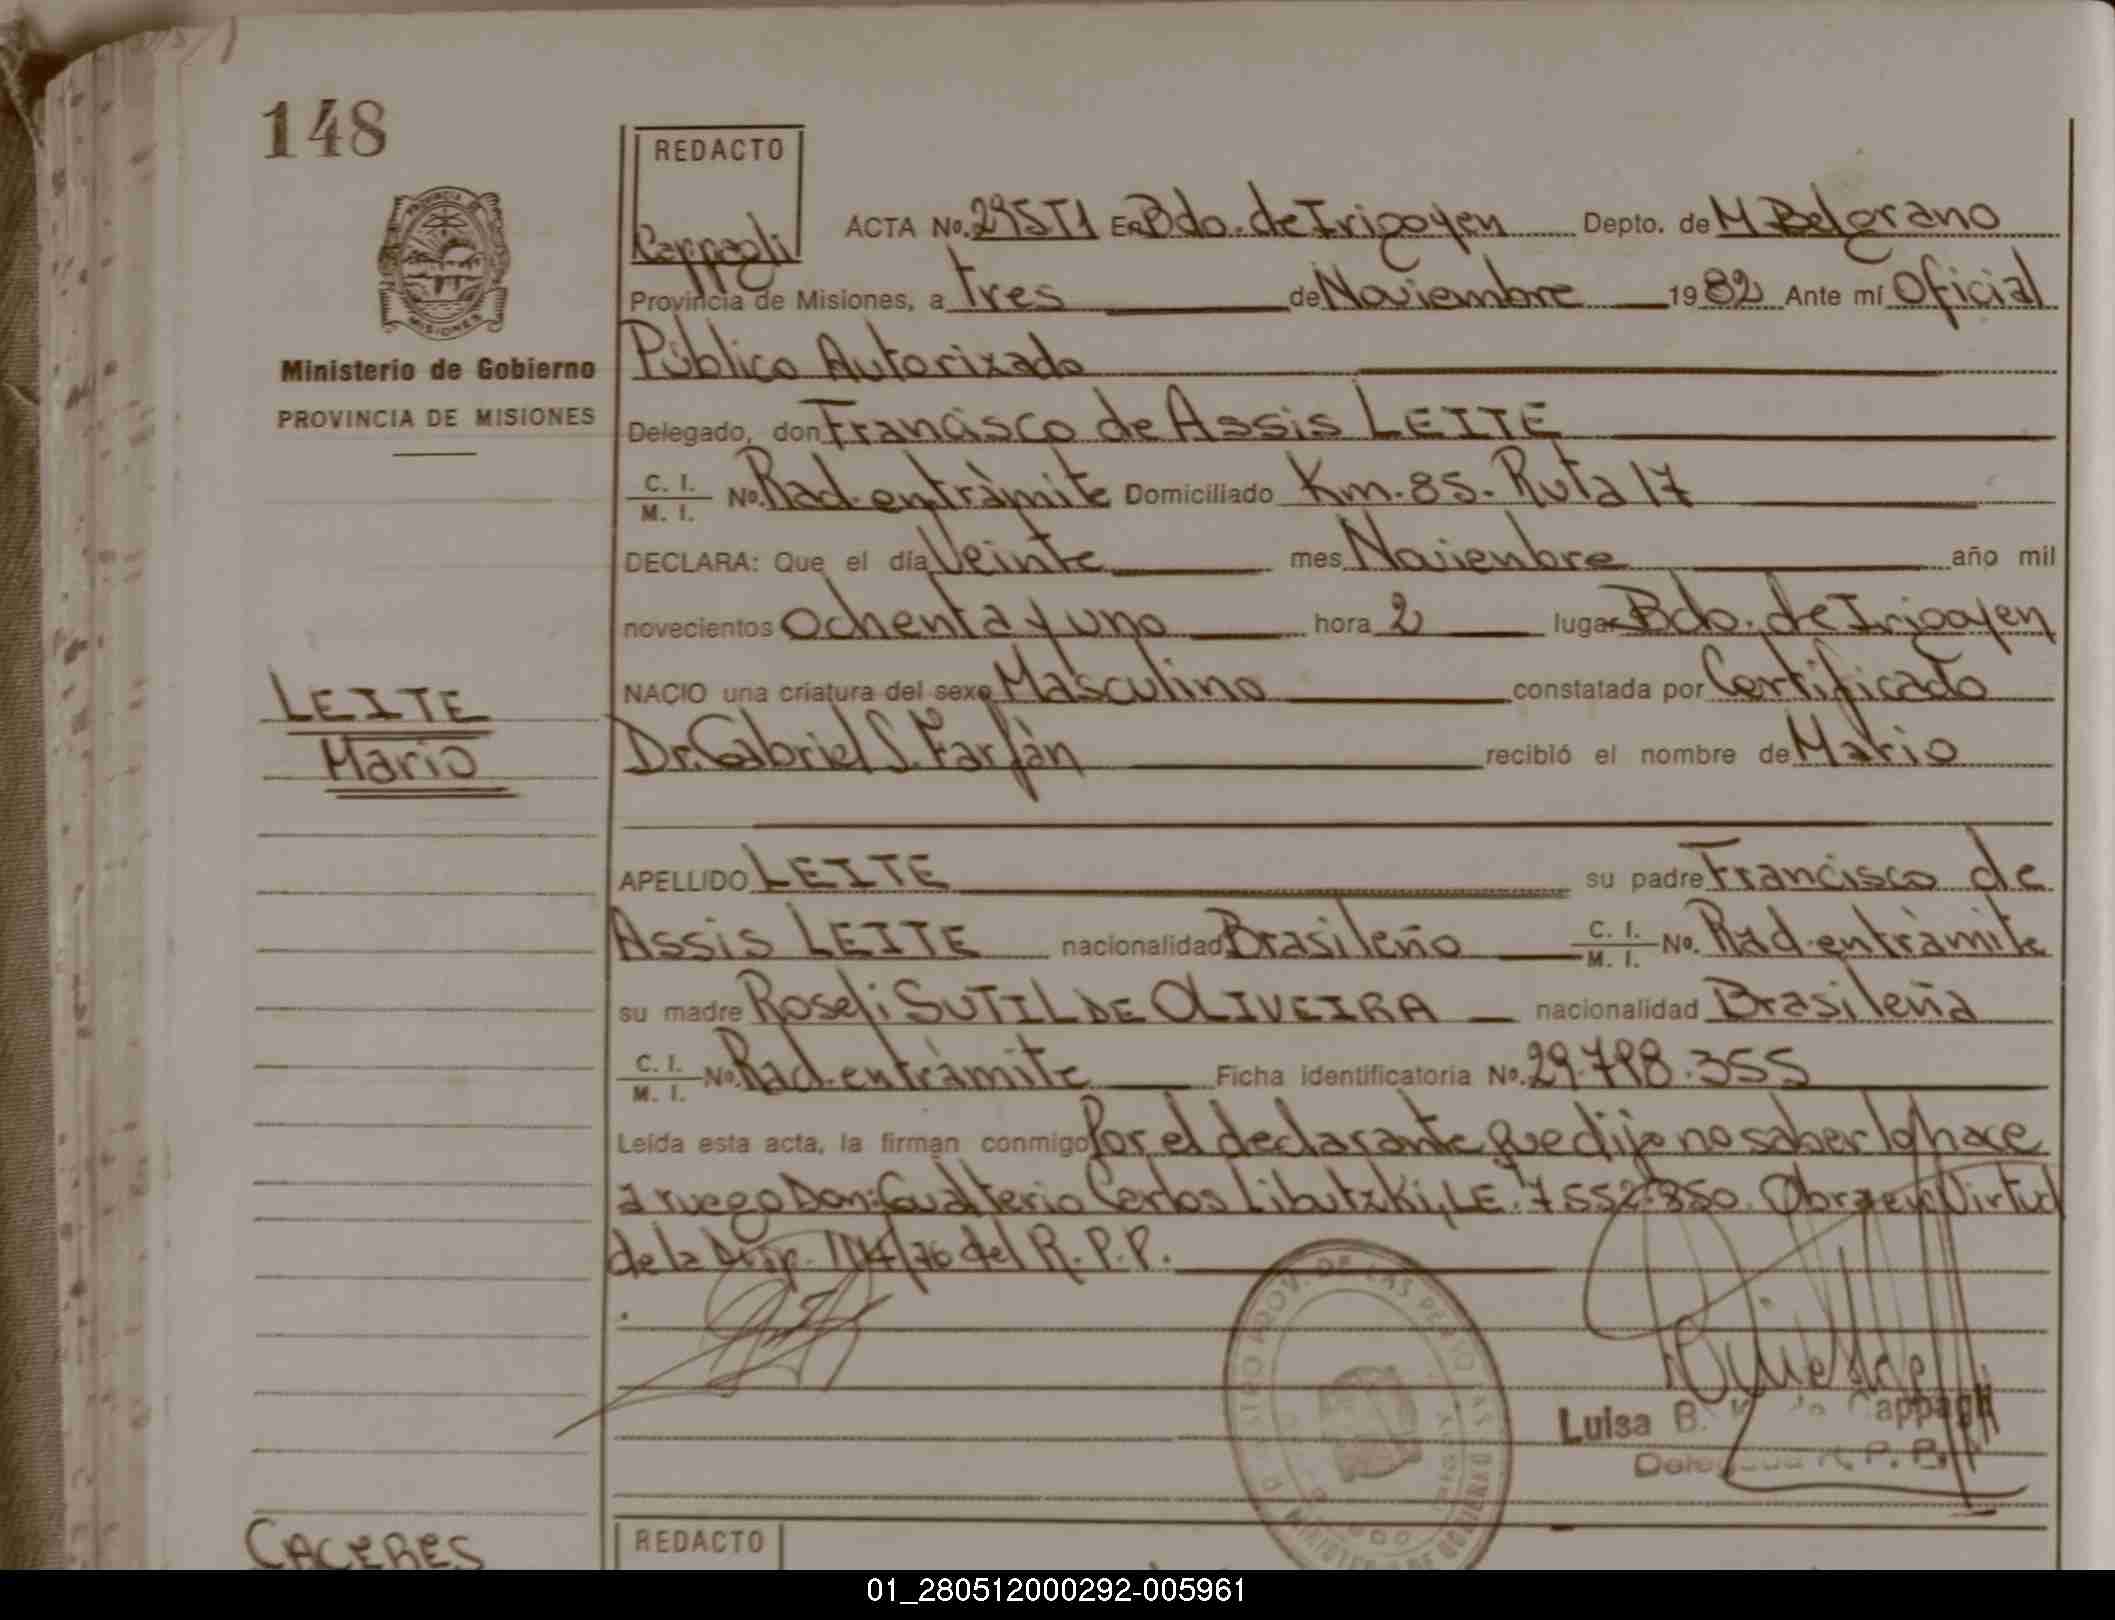 148
REDACTO
Cappagli
ACTA No. 295T1 En Bdo. de Irigoyen Depto. de M Belgrano
Provincia de Misiones, a tres de Noviembre 1982 Ante mí Oficial
Público Autorizado
Ministerio de Gobierno
PROVINCIA DE MISIONES
Delegado, don Francisco de Assis LEITE
C. I. M. I. No. Rad. en tràmite Domiciliado Km. 85. Ruta 17
DECLARA: Que el día Veinte mes Novienbre año mil
novecientos ochenta y uno hora 2 lugar Bdo. de Irigoyen
LEITE
Mario
NACIO una criatura del sexo Masculino constatada por Certificado
Dr. Gabriel S. Farfàn recibió el nombre de Mario
APELLIDO LEITE su padre Francisco de
Assis LEITE nacionalidad Brasileño C. I. M. I. No. Rad. en tràmite
su madre Roseli SUTIL DE OLIVEIRA nacionalidad Brasileña
C. I. M. I. No. Rad. en tràmite Ficha identificatoria No. 29.798.355
Leída esta acta, la firman conmigo Por el declarante que dijo no saber lo hace
a ruego Don: Gualterio Carlos Libutzki, LE. 7552.850. Obra en Virtud
de la Disp. /76 del R. P. P.
Luisa B. de Cappagli
Delegada R. P. P.
CACERES
REDACTO
01_280512000292-005961